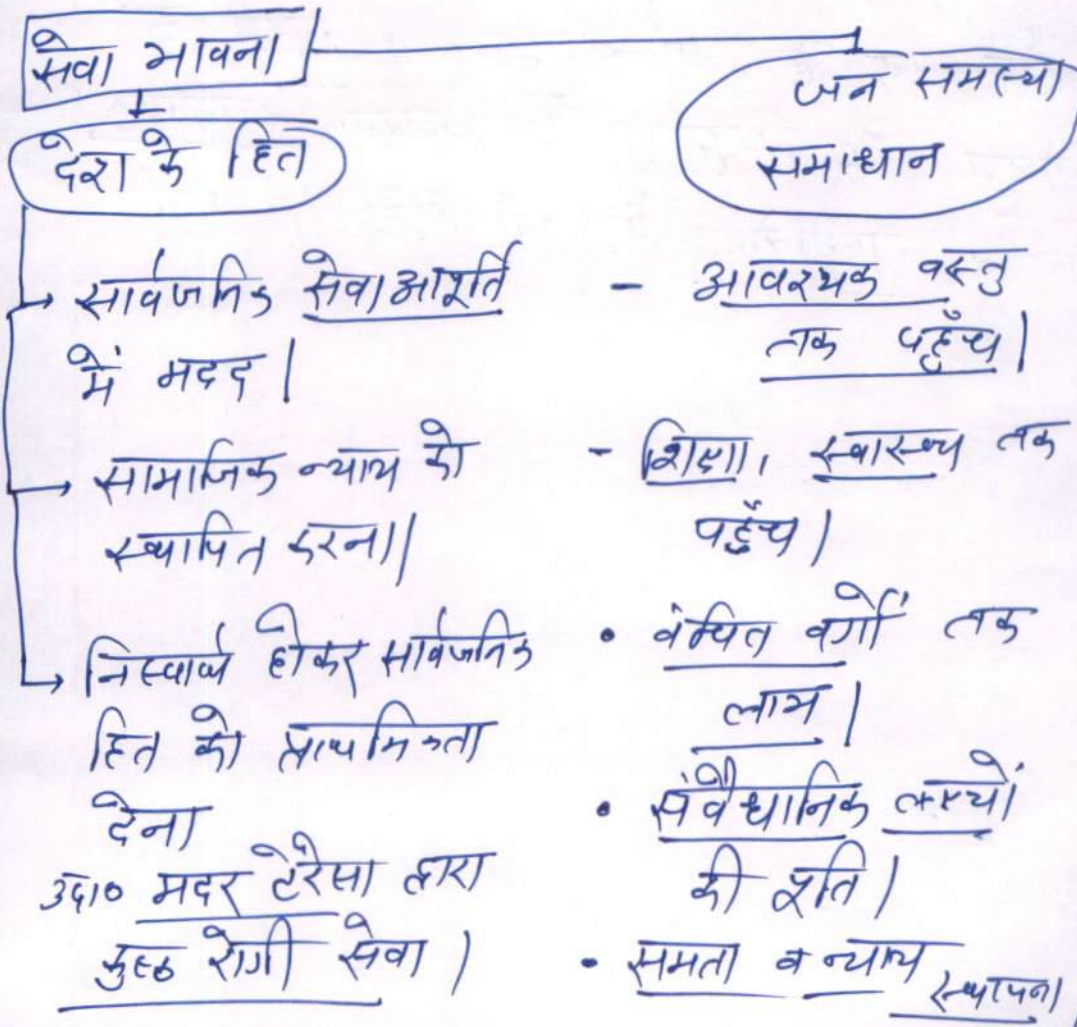 सेवा भावना
देश के हित
सार्वजनिक सेवा आपूर्ति
में मदद।
सामाजिक न्याय को
स्थापित करना।
निस्वार्थ होकर सार्वजनिक
हित को प्राथमिकता
देना
उदा० मदर टेरेसा द्वारा
कुष्ठ रोगी सेवा।
जन समस्या
समाधान
- आवश्यक वस्तु
तक पहुँच।
- शिक्षा, स्वास्थ्य तक
पहुँच।
• वंचित वर्गों तक
लाभ।
• संवैधानिक लक्ष्यों
की पूर्ति।
• समता व न्याय स्थापना